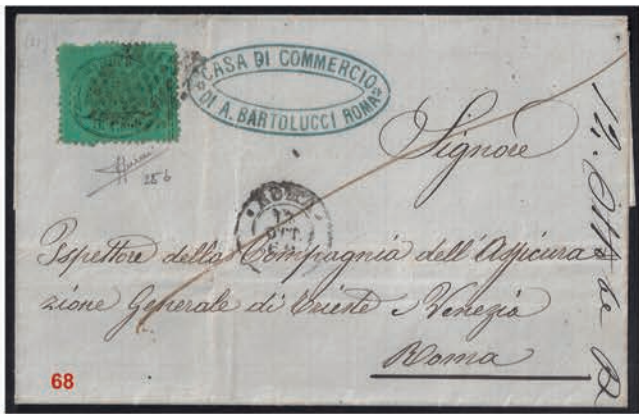 CASA DI COMMERCIO
DI A. BARTOLUCCI ROMA
25 b
ROMA
OTT
Signore
Ispettore della Compagnia dell'Assicura
zione Generale di Trieste e Venezia
Roma
68